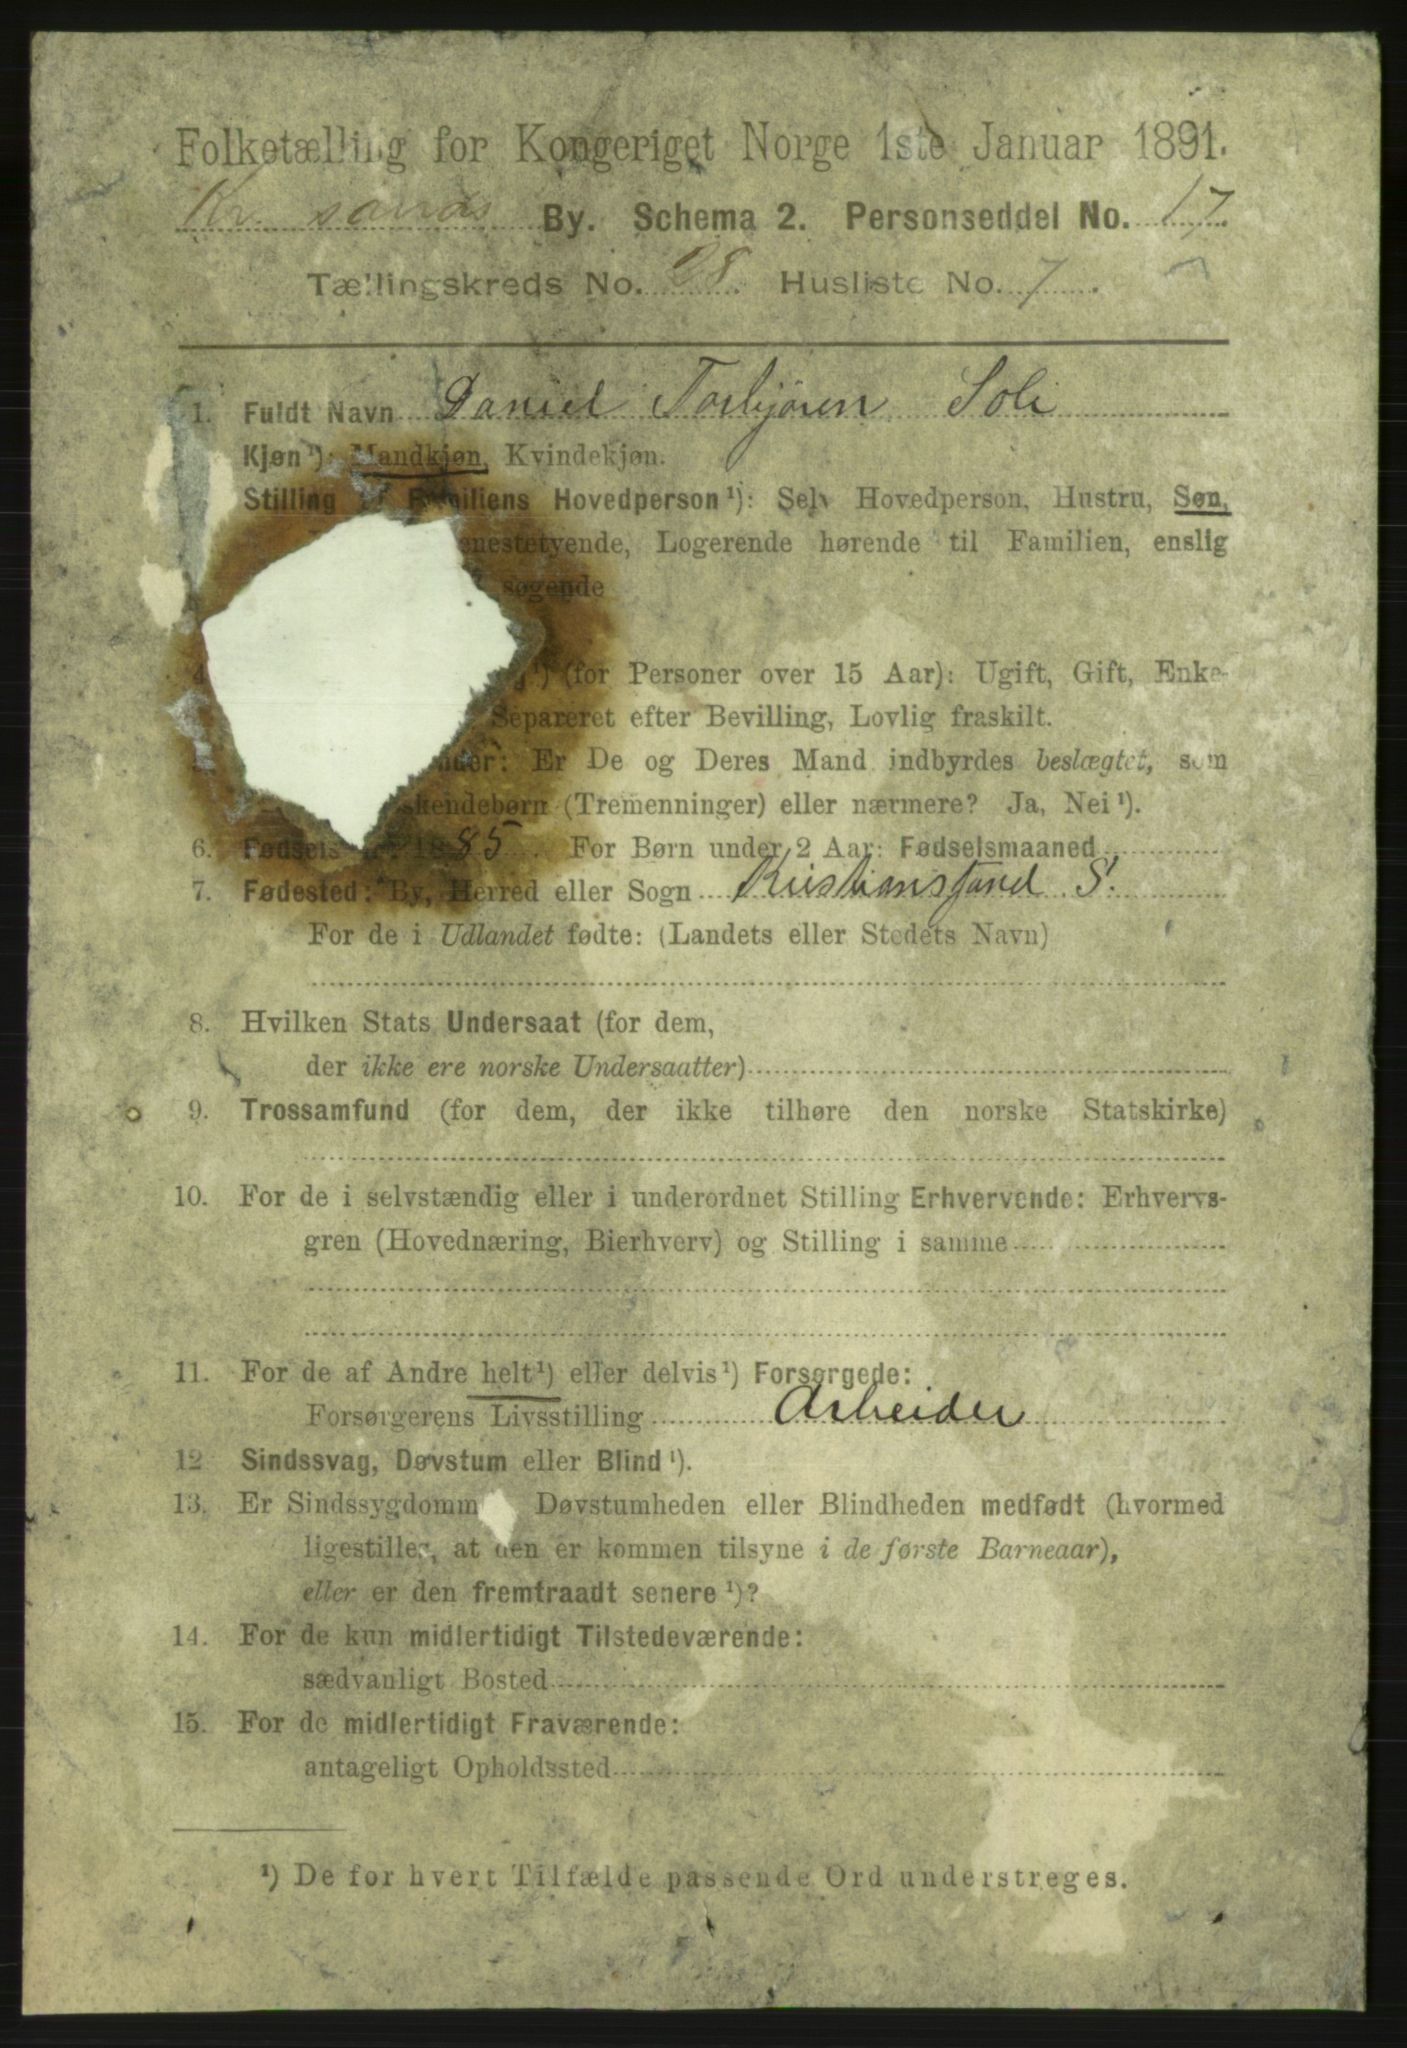 Folketælling for Kongeriget Norge 1ste Januar 1891.
Kr. sands By. Schema 2. Personseddel No. 17
Tællingskreds No. 28. Husliste No. 7.
1. Fuldt Navn Daniel Torbjören Soli
Kjøn¹): Mandkjøn, Kvindekjøn.
Stilling Familiens Hovedperson¹): Selv Hovedperson, Hustru, Søn,
enestetyende, Logerende hørende til Familien, enslig
søgende
4 ¹) (for Personer over 15 Aar): Ugift, Gift, Enke-
Separeret efter Bevilling, Lovlig fraskilt.
nder: Er De og Deres Mand indbyrdes beslægtet, som
skendebørn (Tremenninger) eller nærmere? Ja, Nei¹).
6. Fødsels 1885. For Børn under 2 Aar: Fødselsmaaned
7. Fødested: By, Herred eller Sogn Kristianssand S.
For de i Udlandet fødte: (Landets eller Stedets Navn)
8. Hvilken Stats Undersaat (for dem,
der ikke ere norske Undersaatter)
9. Trossamfund (for dem, der ikke tilhøre den norske Statskirke)
10. For de i selvstændig eller i underordnet Stilling Erhvervende: Erhvervs-
gren (Hovednæring, Bierhverv) og Stilling i samme
11. For de af Andre helt¹) eller delvis¹) Forsørgede:
Forsørgerens Livsstilling Arbeider
12 Sindssvag, Døvstum eller Blind¹).
13. Er Sindssygdomm Døvstumheden eller Blindheden medfødt (hvormed
ligestilles, at den er kommen tilsyne i de første Barneaar),
eller er den fremtraadt senere¹)?
14. For de kun midlertidigt Tilstedeværende:
sædvanligt Bosted
15. For de midlertidigt Fraværende:
antageligt Opholdssted
¹) De for hvert Tilfælde passende Ord understreges.